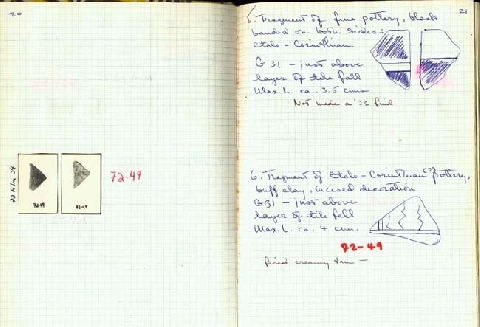 20
72-49
72-49
72-49
21
5. Fragment of fine pottery, black
bands on both sides
Etrusco-Corinthian
G 31 - just above
layer of tile fall
Max. L. ca. 3.5 cms
Not made a '72 find
6. Fragment of Etrusco-Corinthian pottery,
buff clay, incised decoration
G 31 - just above
layer of tile fall
Max. L. ca. 4 cm.
72-49
fired creamy